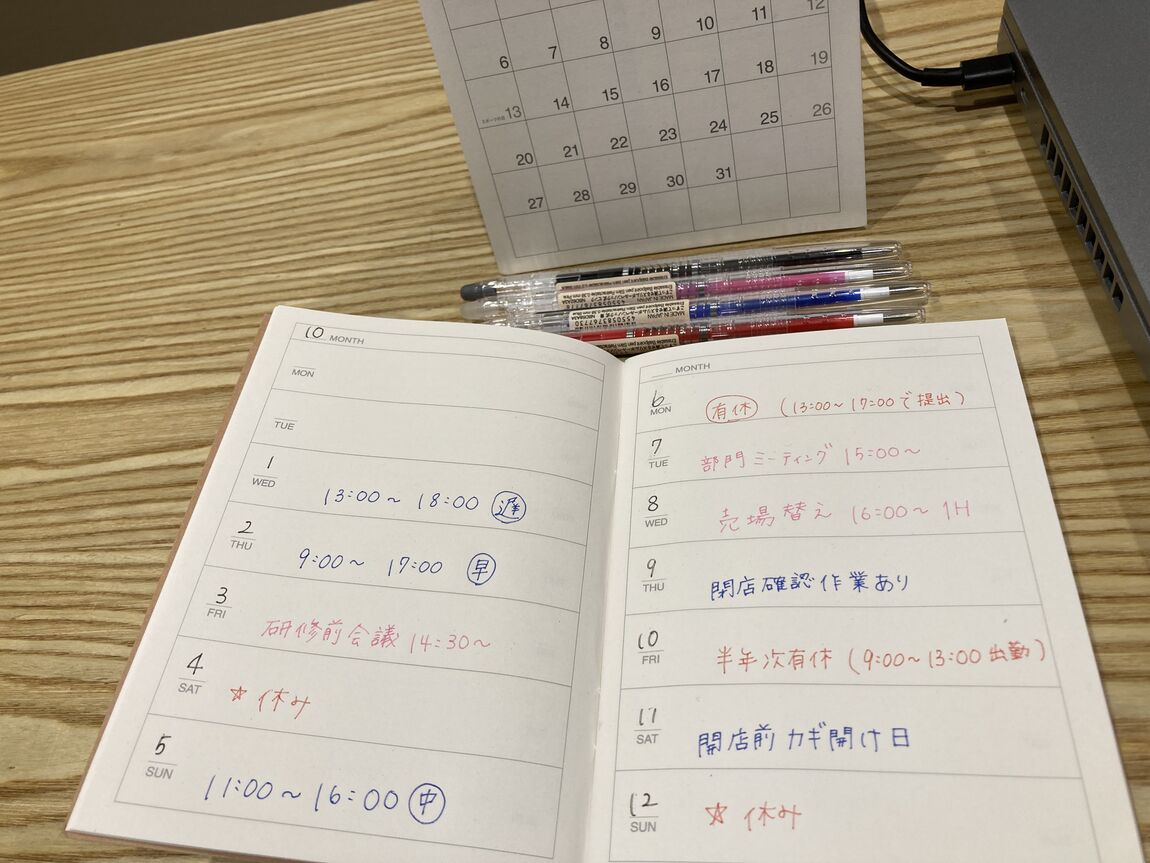 11 12
6 7 8 9 10
13 14 15 16 17 18 19
20 21 22 23 24 25 26
27 28 29 30 31
MADE IN JAPAN
4550583767730
10 MONTH
MON
TUE
1 WED 13:00～18:00 遅
2 THU 9:00～17:00 早
3 FRI 研修前会議 14:30～
4 SAT ☆休み
5 SUN 11:00～16:00 中
MONTH
6 MON 有休 (13:00～17:00で提出)
7 TUE 部門ミーティング 15:00～
8 WED 売場替え 16:00～1H
9 THU 閉店確認作業あり
10 FRI 半年次有休 (9:00～13:00出勤)
11 SAT 開店前カギ開け日
12 SUN ☆休み